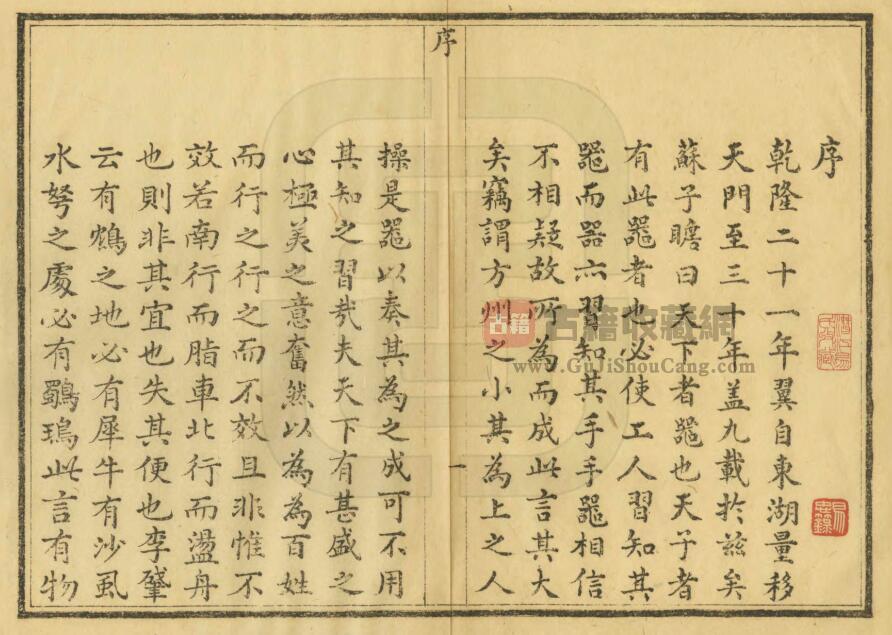 序
乾隆二十一年翼自東湖量移
天門至三十年盖九載扵兹矣
蘇子瞻曰天下者噐也天子者
有此噐者也必使工人習知其
噐而器亦習知其手手噐相信
不相疑故所為而成此言其大
矣竊謂方州之小其為上之人
序
一
操是噐以奏其為之成可不用
其知之習㢤夫天下有甚盛之
心極美之意奮然以為為百姓
而行之行之而不效且非惟不
效若南行而脂車北行而盪舟
也則非其宜也失其便也李肇
云有鴆之地必有犀牛有沙虱
水弩之處必有鸀鳿此言有物
古籍
古籍收藏網
www.GuJiShouCang.com